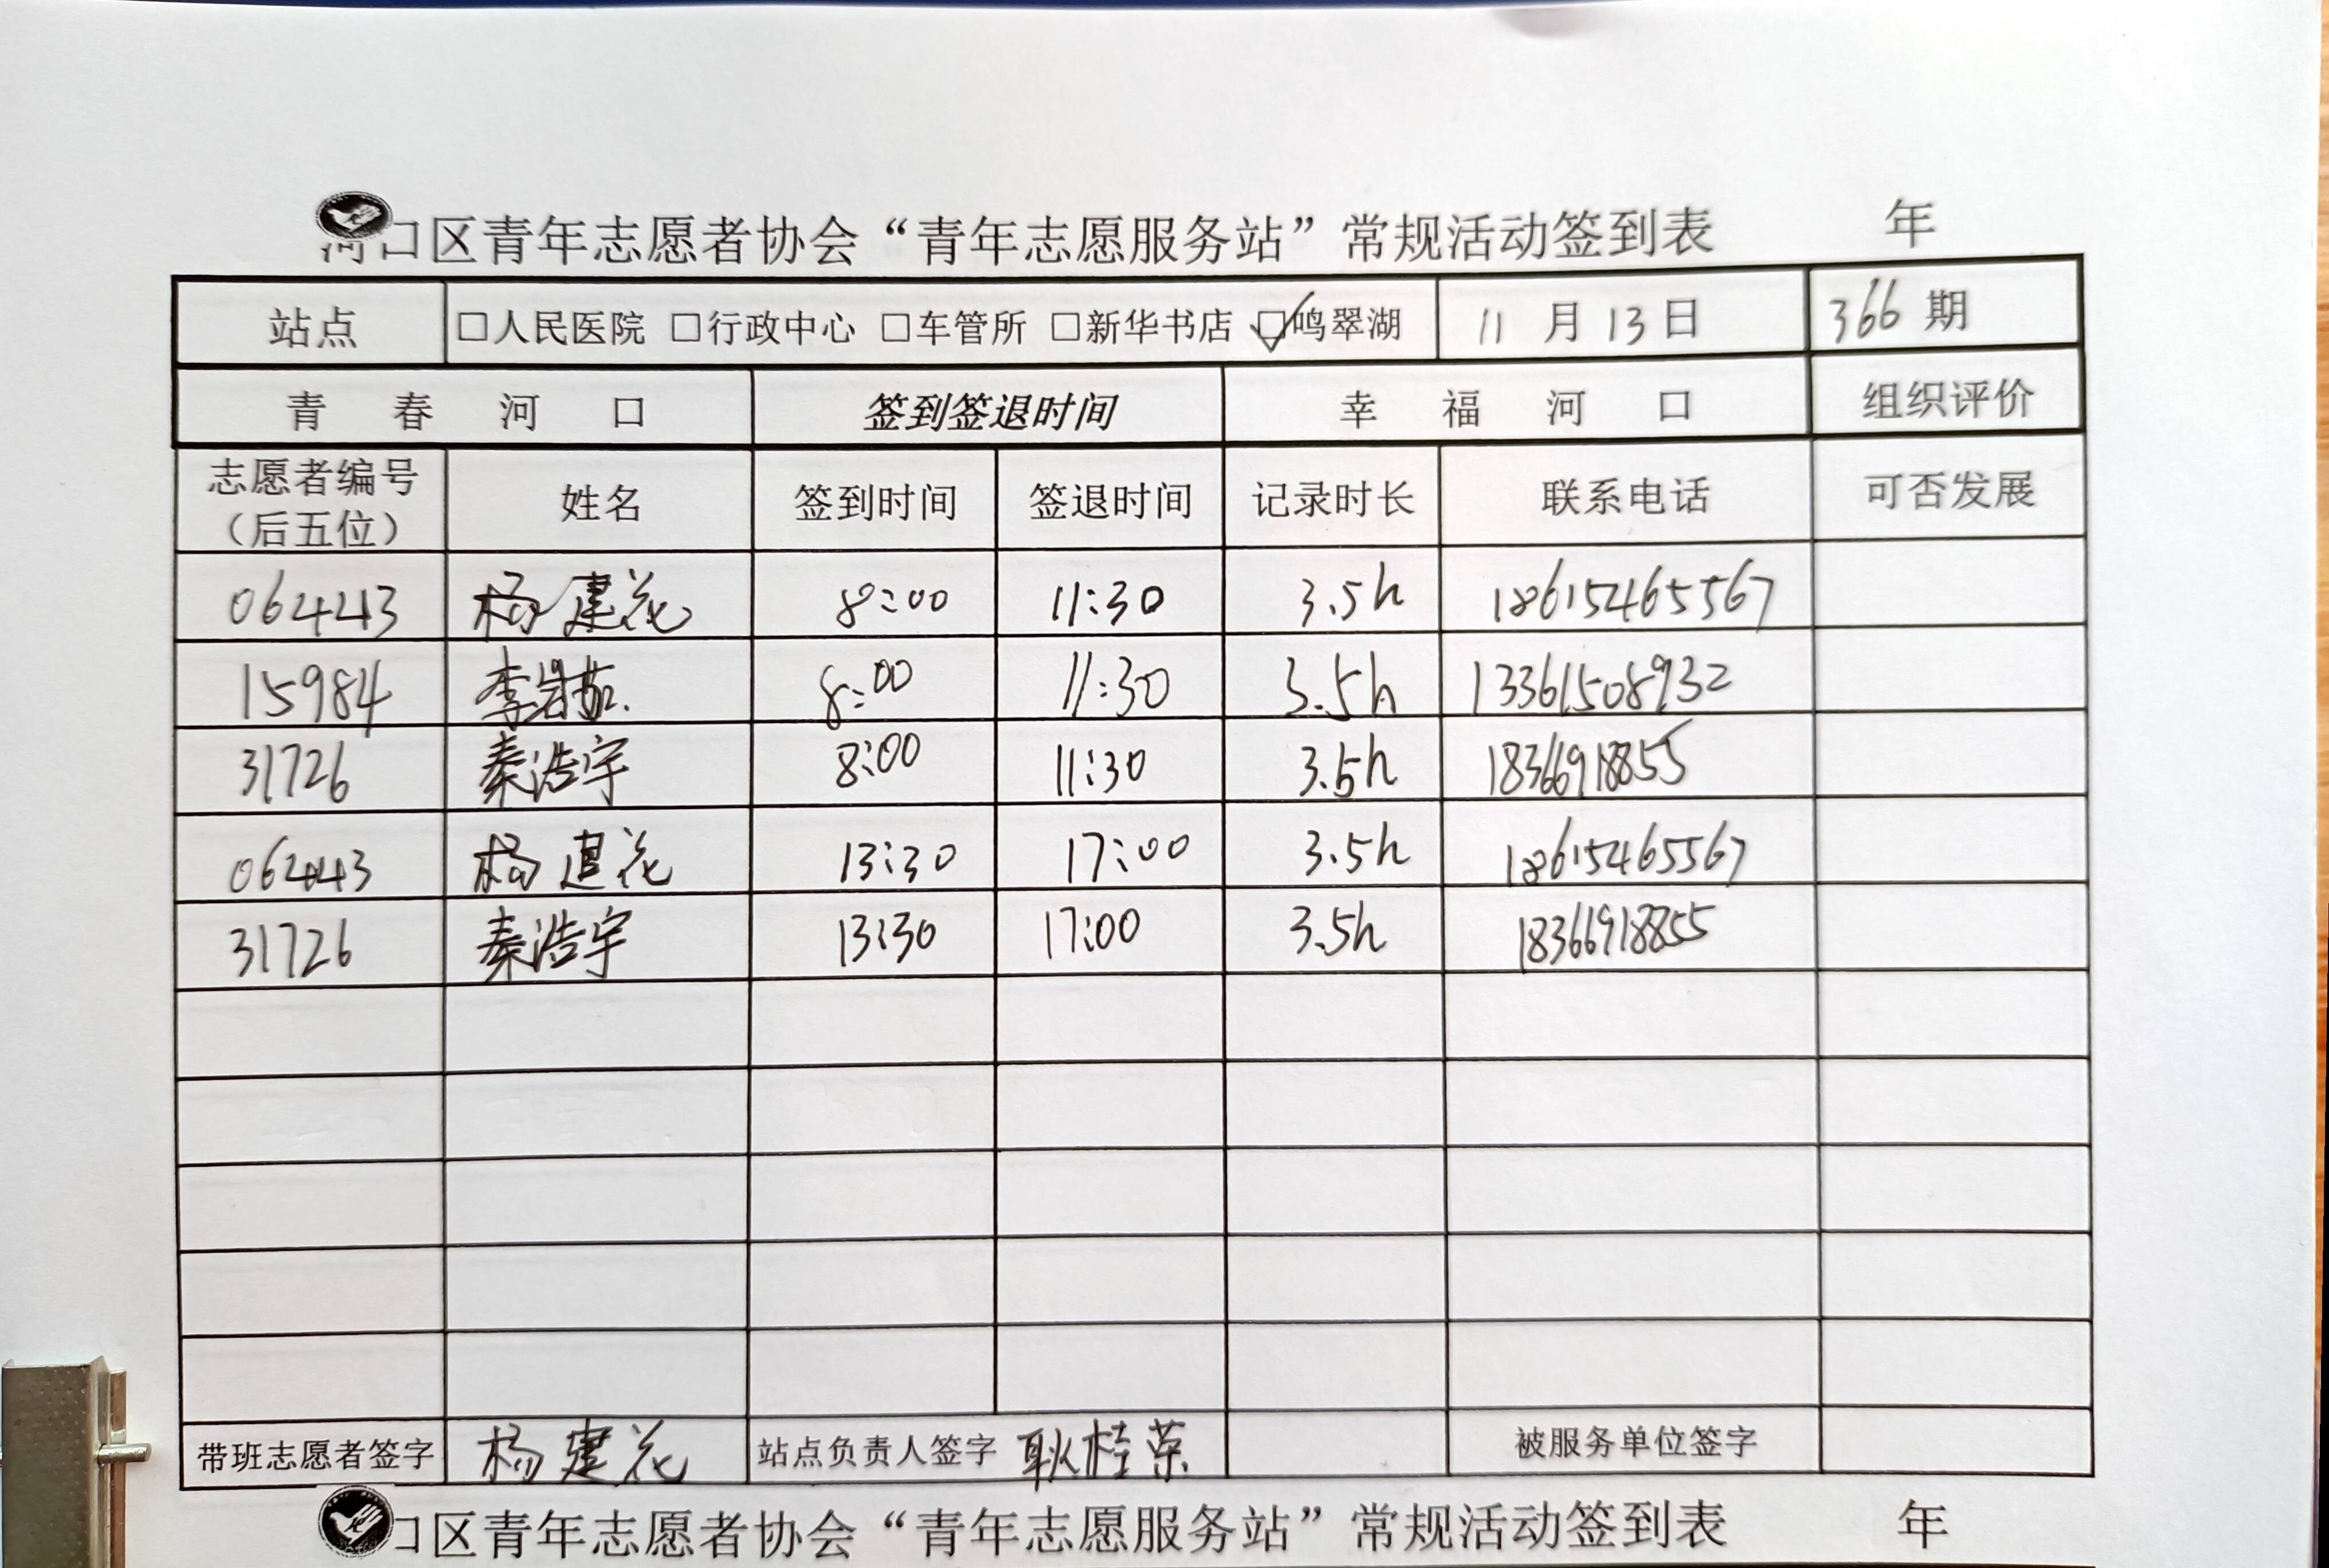 河口区青年志愿者协会“青年志愿服务站”常规活动签到表 年
站点 □人民医院 □行政中心 □车管所 □新华书店 ☑鸣翠湖 11月13日 366期
青春河口 签到签退时间 幸福河口 组织评价
志愿者编号（后五位） 姓名 签到时间 签退时间 记录时长 联系电话 可否发展
064443 杨建花 8:00 11:30 3.5h 18615465567
15984 8:00 11:30 3.5h 13361508932
31726 秦浩宇 8:00 11:30 3.5h 18366918855
杨建花 13:30 17:00 3.5h 18615465567
31726 秦浩宇 13:30 17:00 3.5h 18366918855
带班志愿者签字 杨建花 站点负责人签字 耿桂荣 被服务单位签字
口区青年志愿者协会“青年志愿服务站”常规活动签到表 年